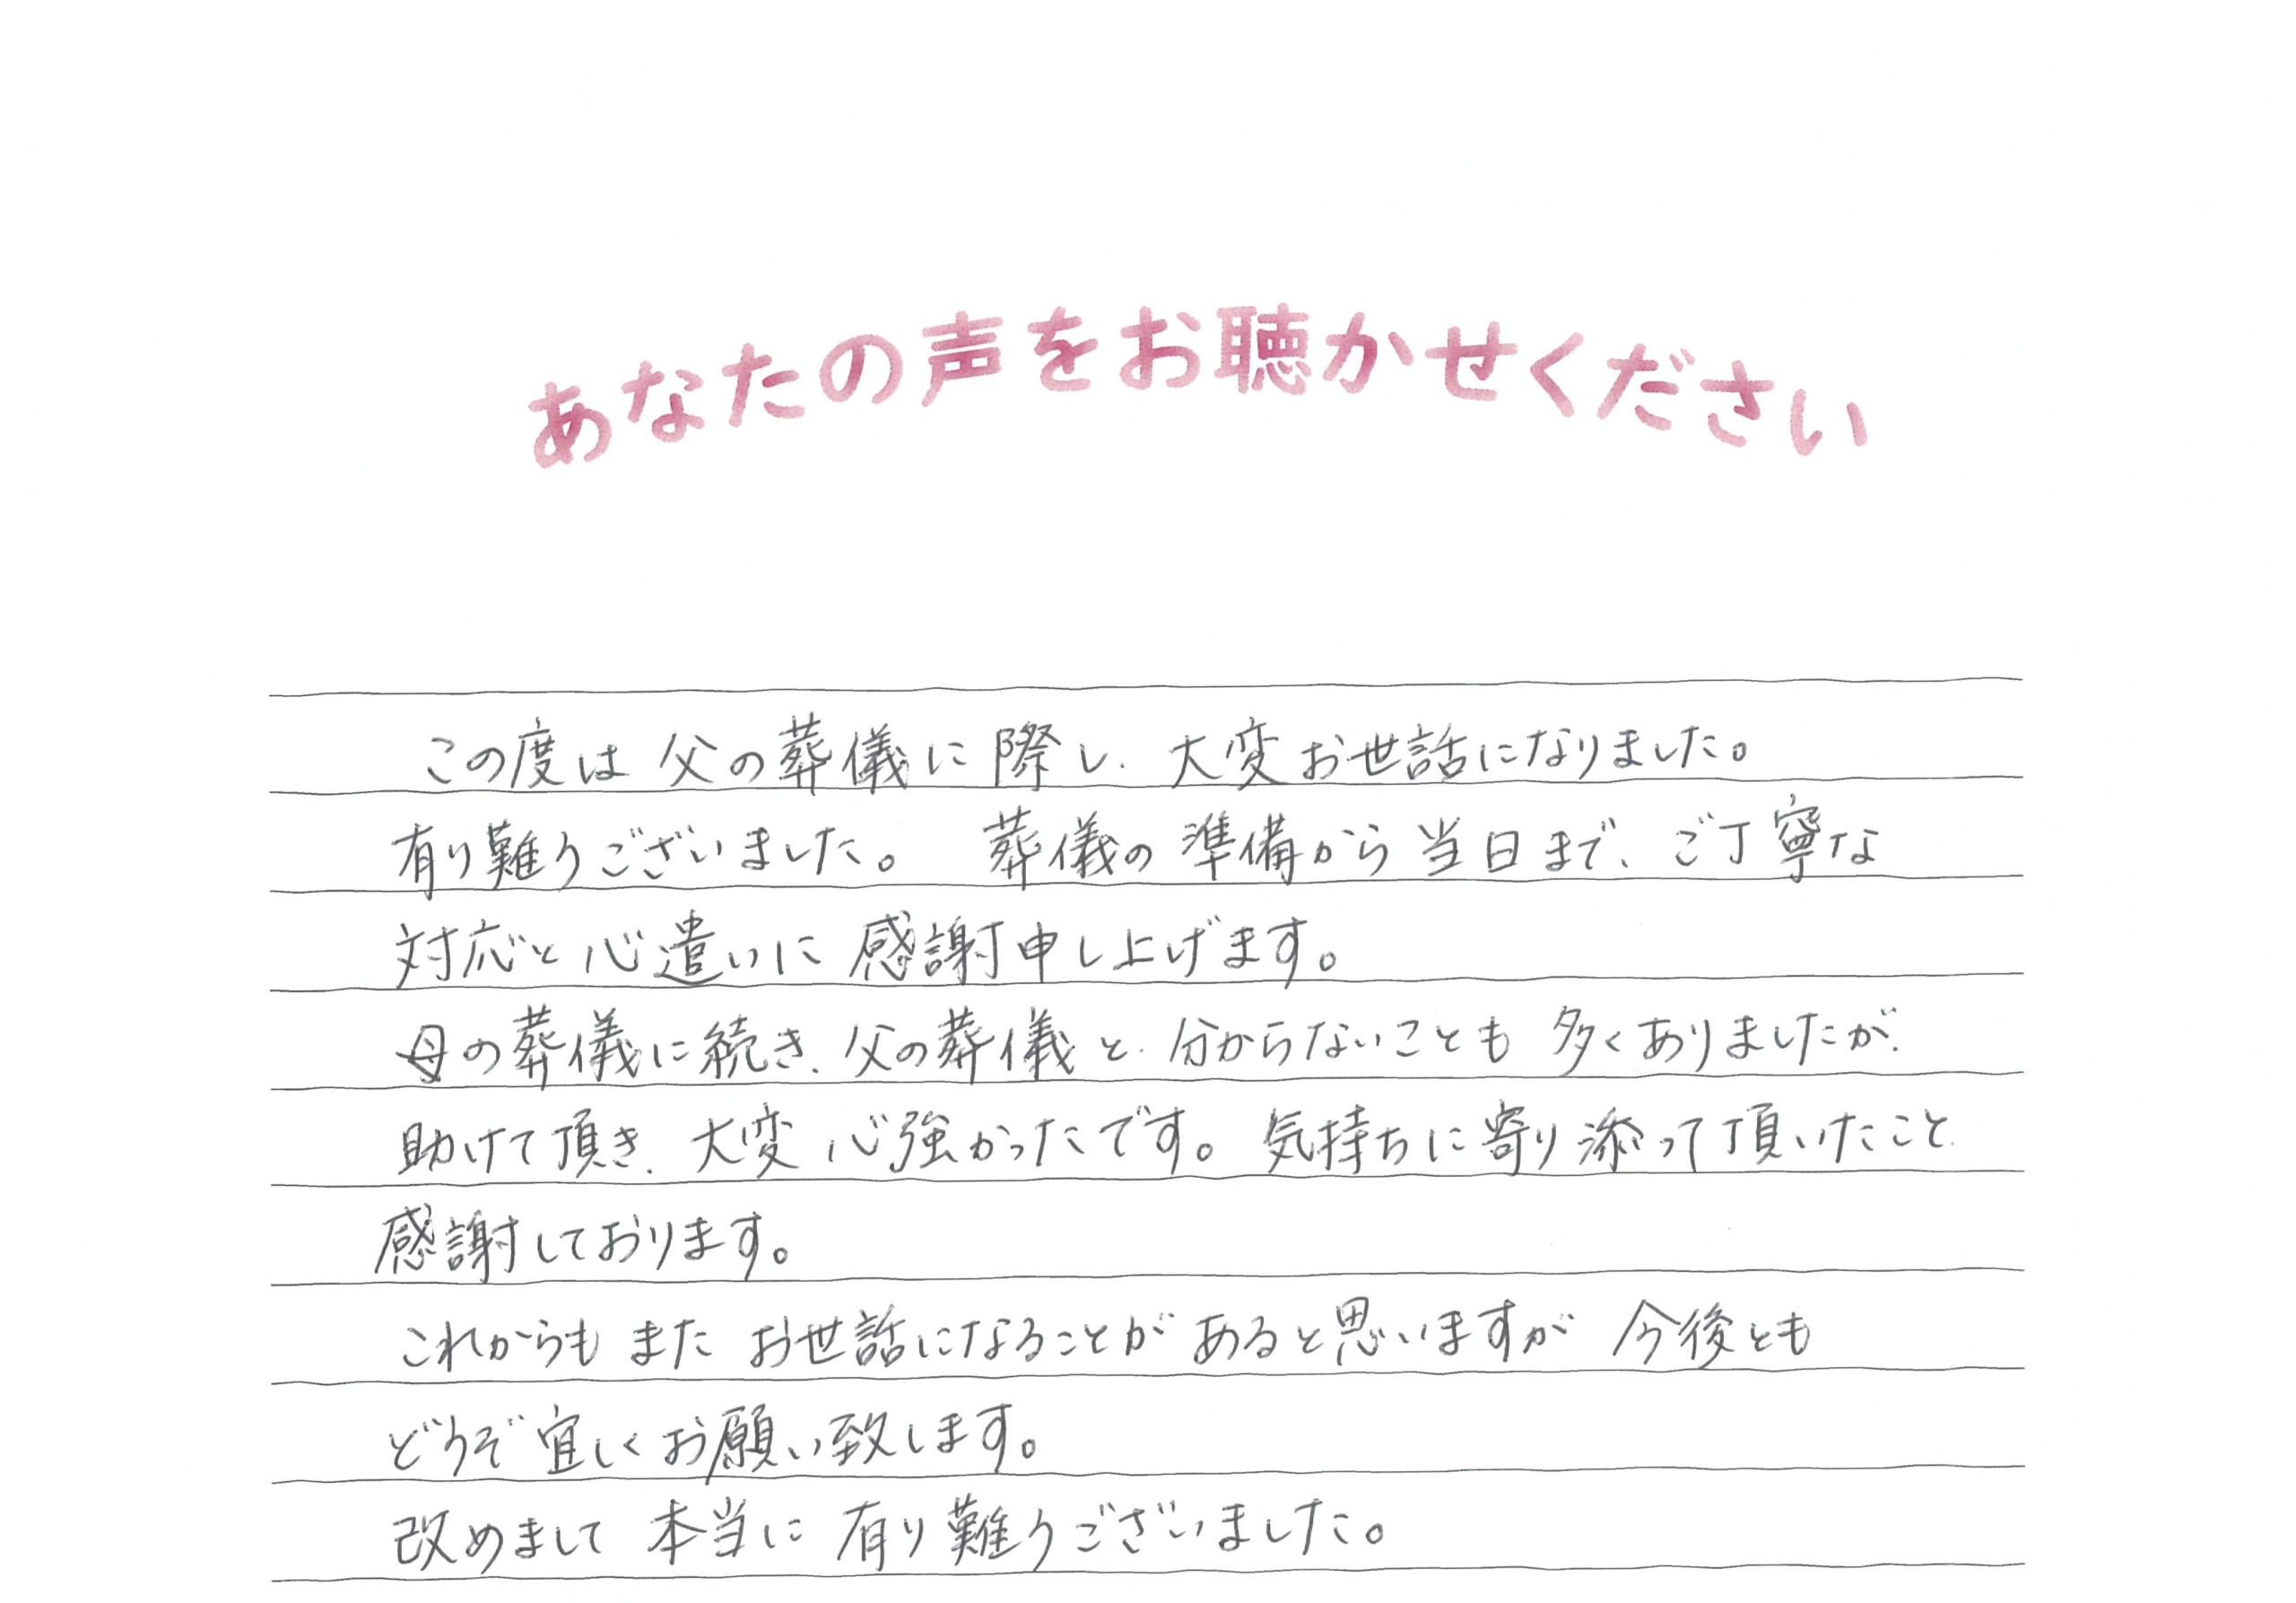 あなたの声をお聴かせください
この度は父の葬儀に際し、大変お世話になりました。
有り難うございました。 葬儀の準備から当日まで、ご丁寧な
対応と心遣いに感謝申し上げます。
母の葬儀に続き、父の葬儀と、分からないことも多くありましたが、
助けて頂き、大変心強かったです。気持ちに寄り添って頂いたこと、
感謝しております。
これからもまたお世話になることがあると思いますが今後とも
どうぞ宜しくお願い致します。
改めまして本当に有り難うございました。